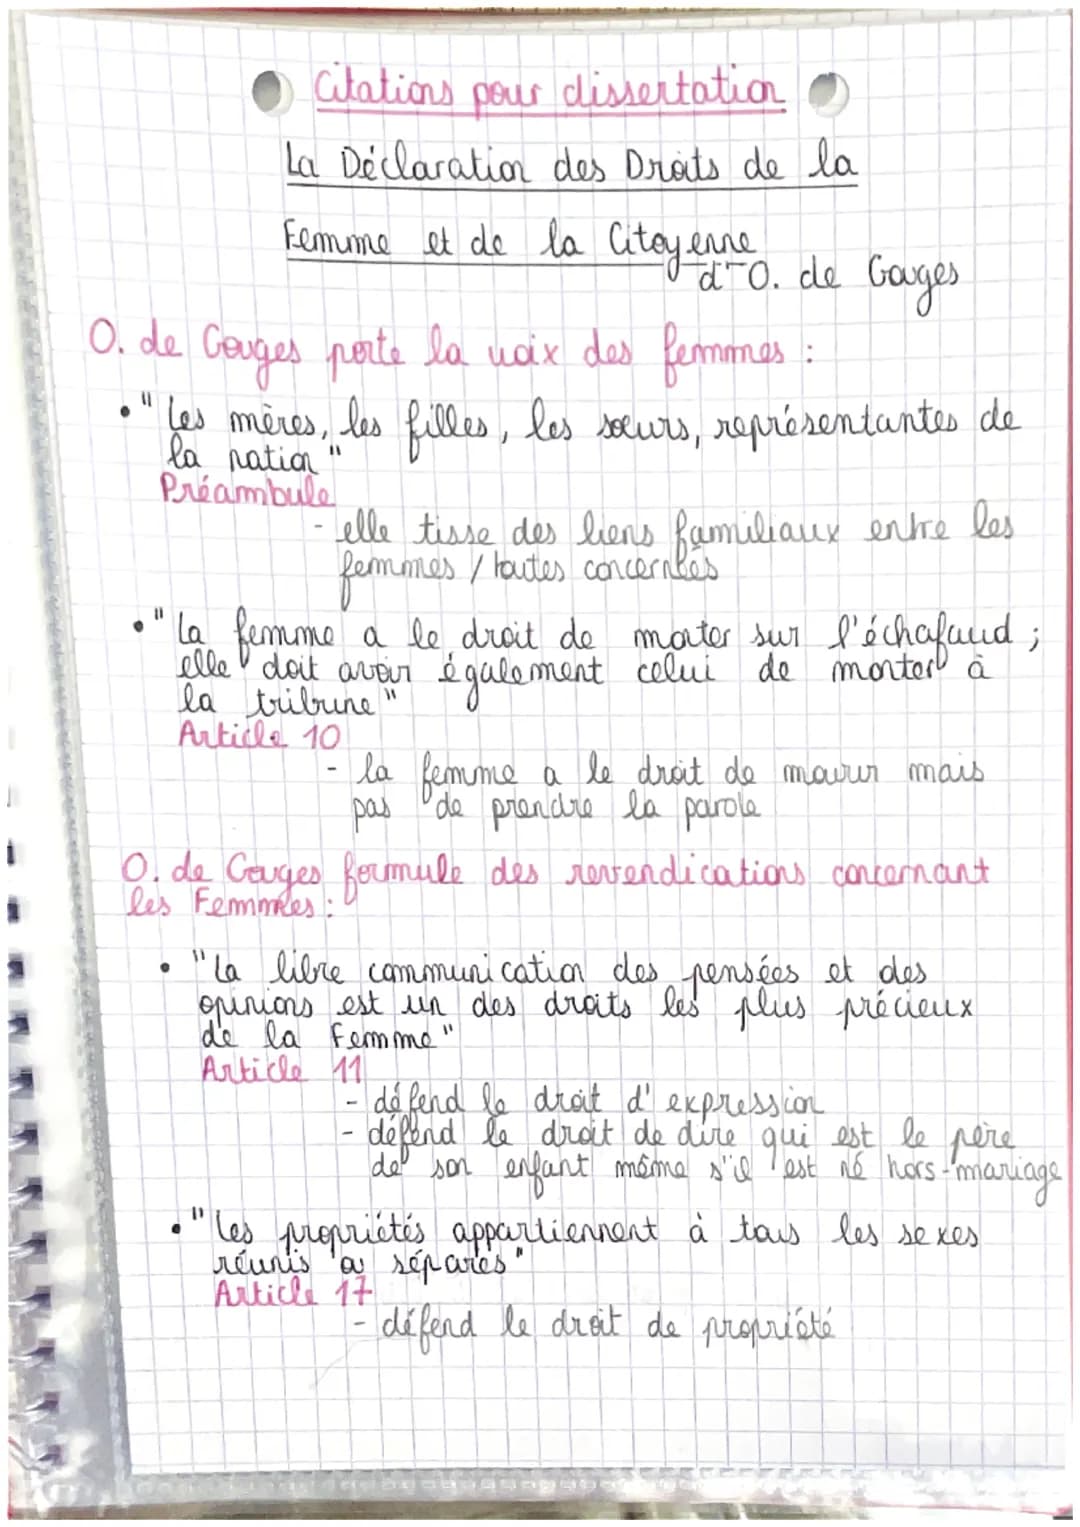 Citations pour dissertation
La Déclaration des Droits de la
Femme et de la Citoyenne
d'O. de Gouges
O. de Gouges porte la voix des femmes :
• "Les mères, les filles, les sœurs, représentantes de
la nation"
Préambule
- elle tisse des liens familiaux entre les
femmes / toutes concernées
• "La femme a le droit de monter sur l'échafaud ;
elle doit avoir également celui de monter à
la tribune"
Article 10
- la femme a le droit de mourir mais
pas de prendre la parole
O. de Gouges formule des revendications concernant
les Femmes :
• "La libre communication des pensées et des
opinions est un des droits les plus précieux
de la Femme"
Article 11
- défend le droit d'expression
- défend le droit de dire qui est le père
de son enfant même s'il est né hors-mariage
• "Les propriétés appartiennent à tous les sexes
réunis ou séparés"
Article 17
- défend le droit de propriété